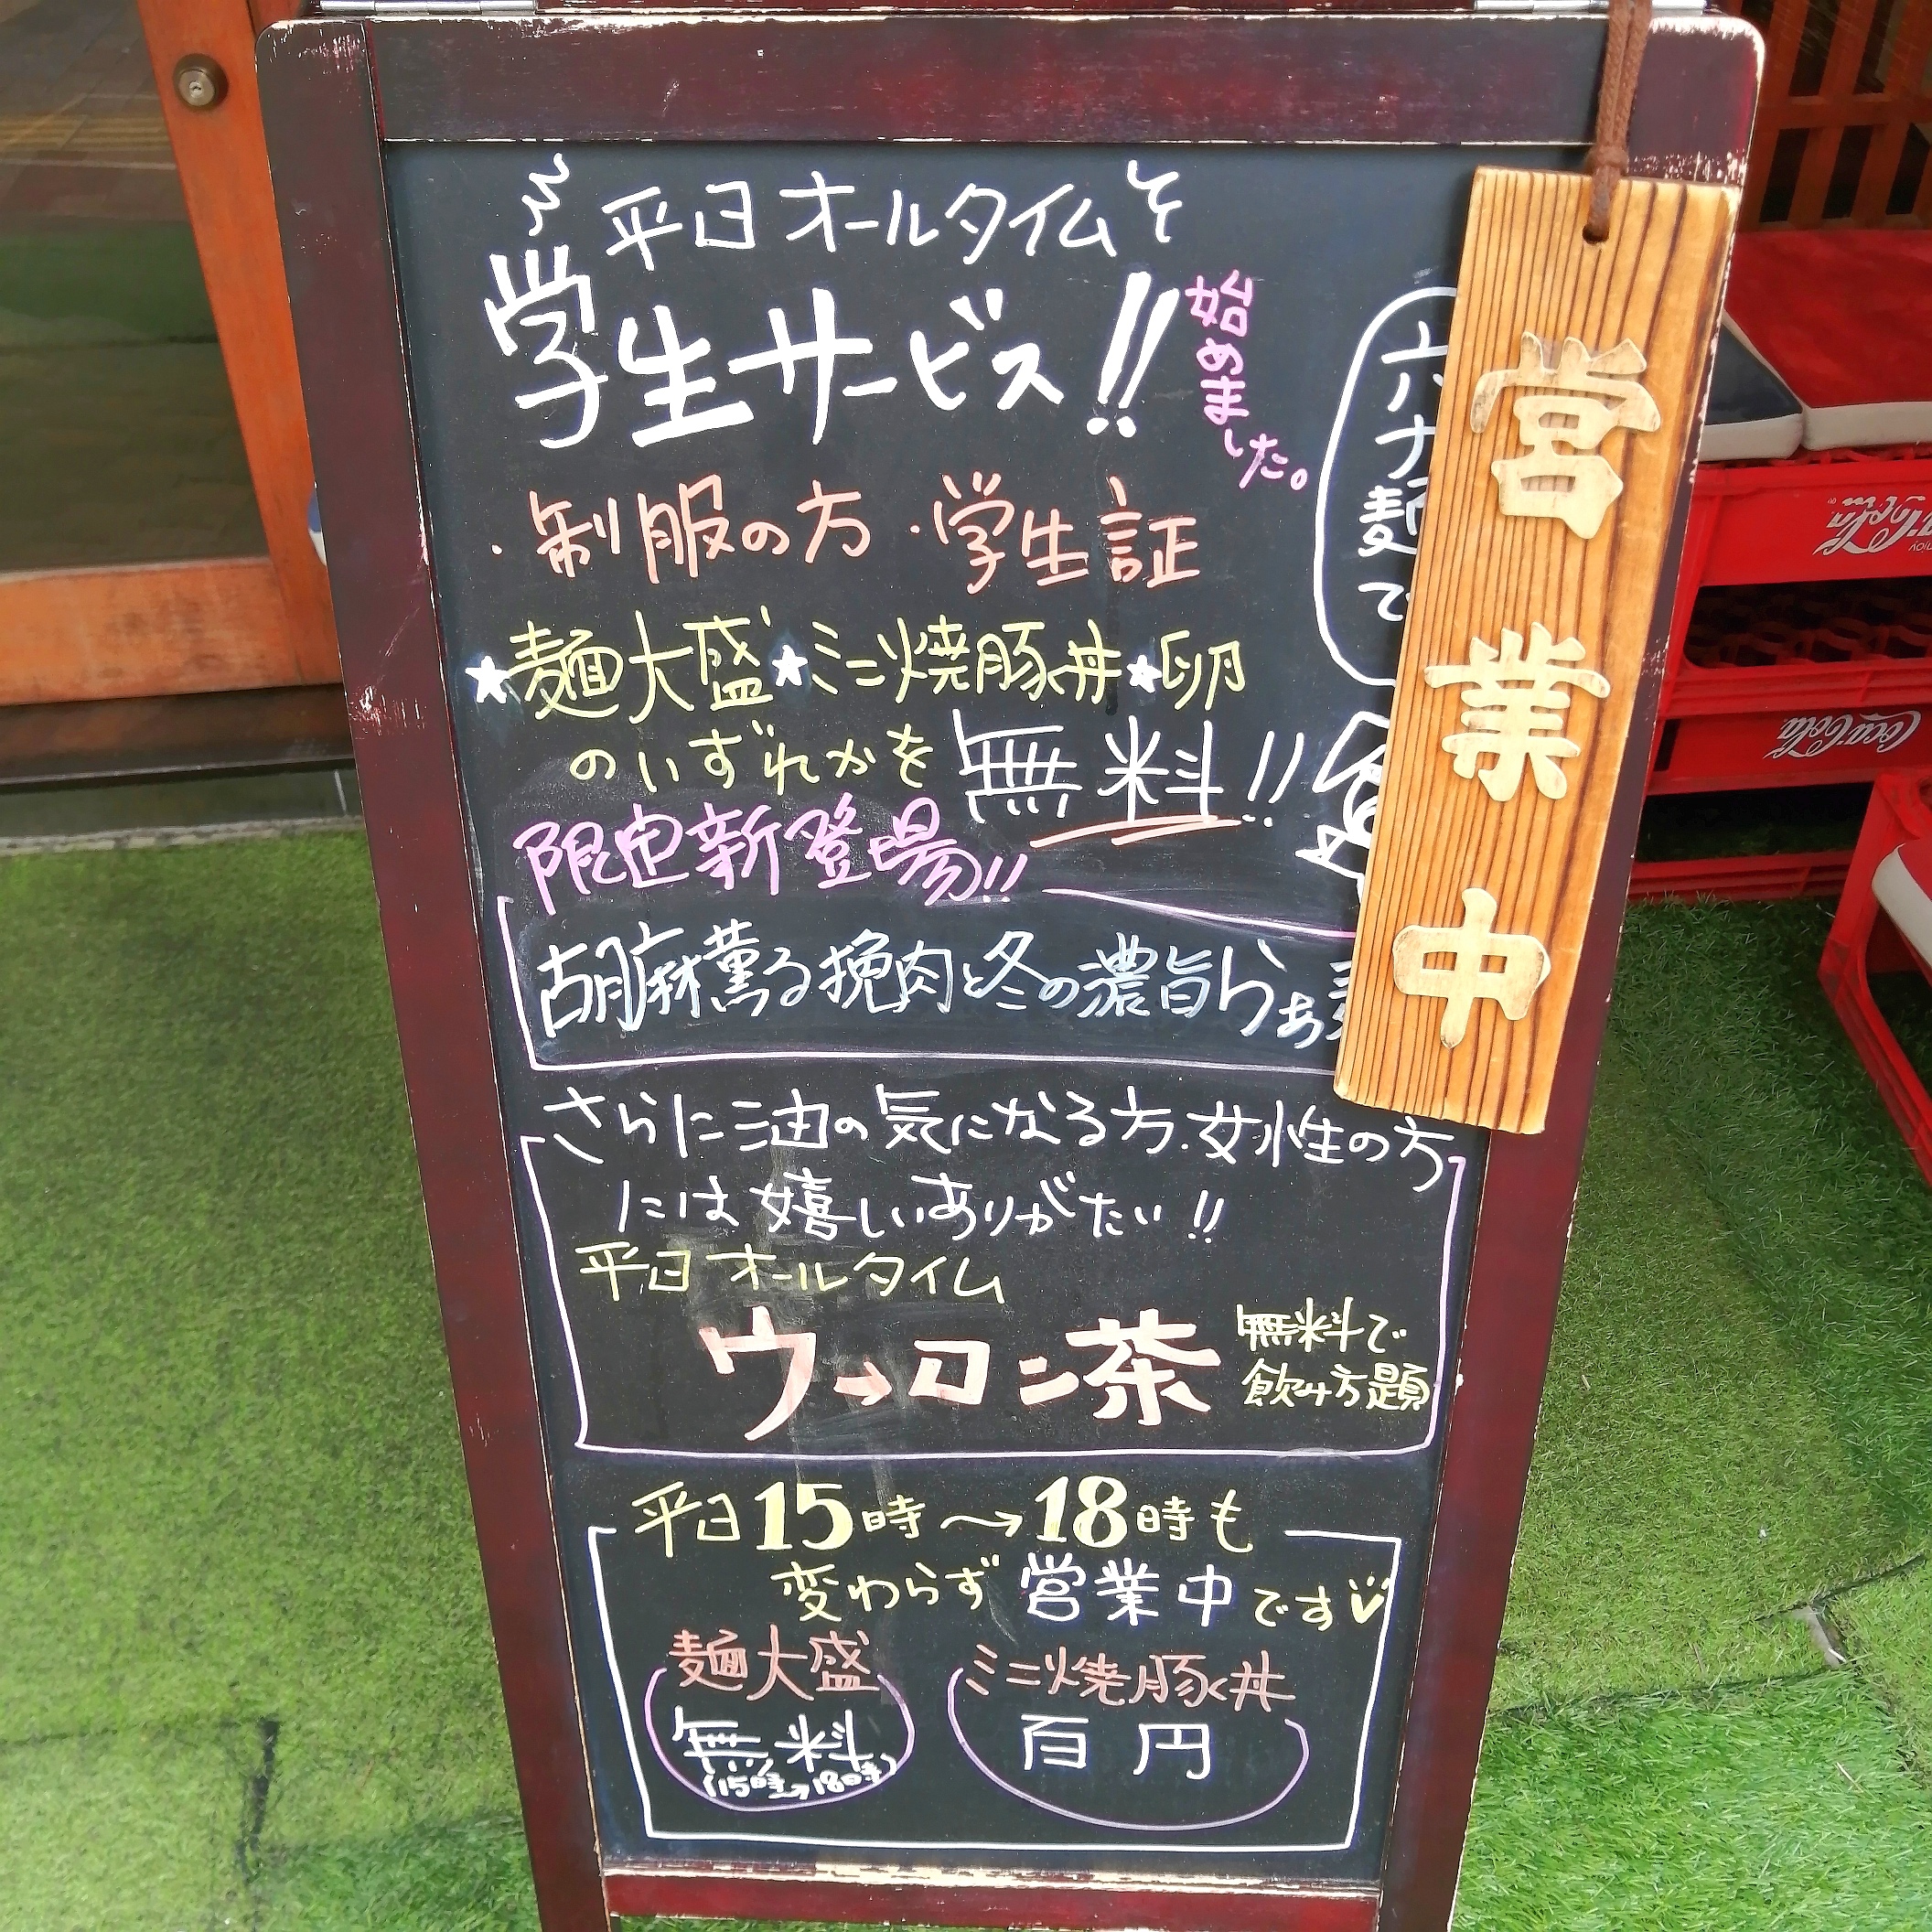 平日オールタイム
学生サービス!!
始めました。
・制服の方・学生証
★麺大盛★ミニ焼豚丼★卵
のいずれかを無料!!
限定新登場!!
胡麻薫る挽肉と冬の濃旨らぁ
さらに油の気になる方・女性の方
には嬉しいありがたい!!
平日オールタイム
ウーロン茶
無料で
飲み方題
平日15時〜18時も
変わらず営業中です
麺大盛
無料
(15時〜18時)
ミニ焼豚丼
百円
麺で
営業中
Coca-Cola